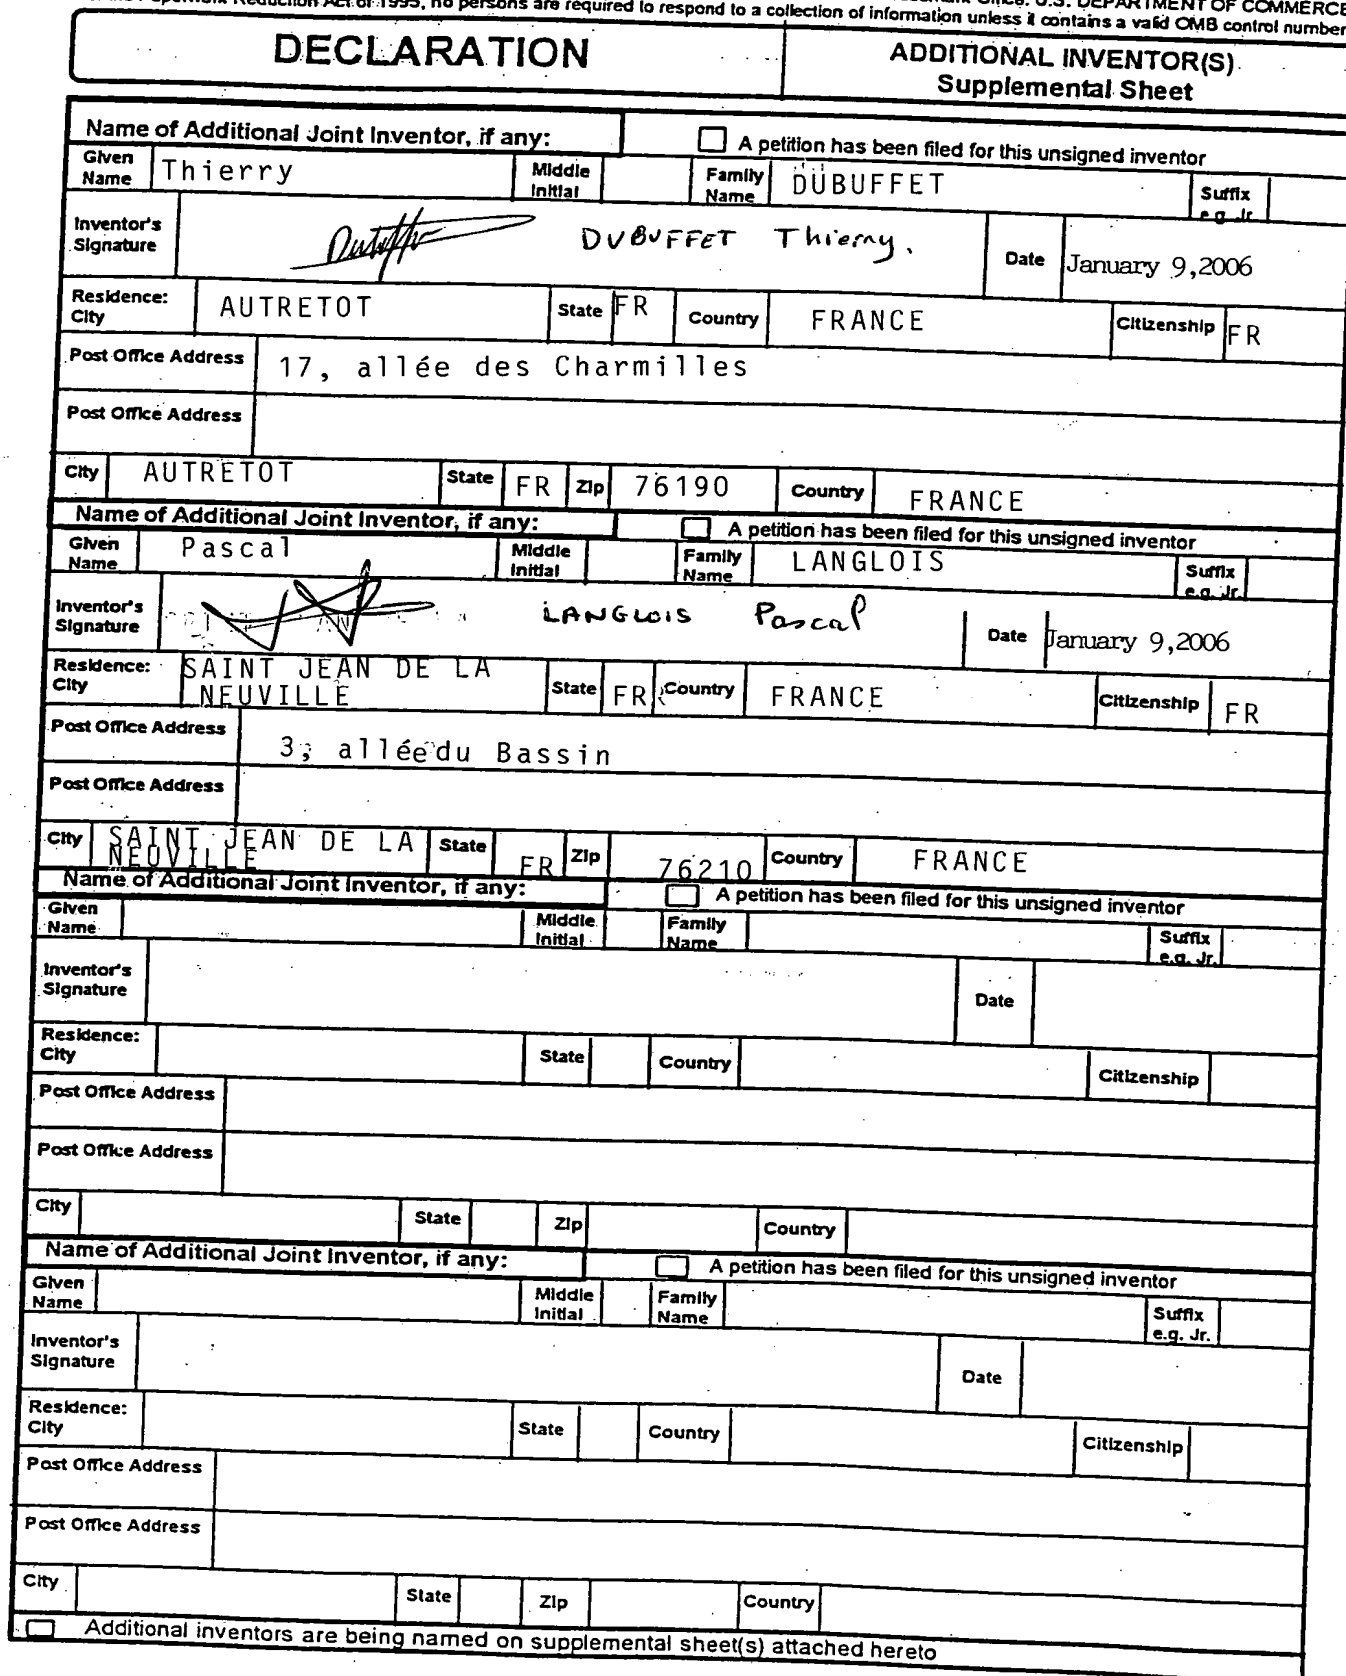 Reduction Act of 1995, no persons are required to respond to a collection of information unless it contains a valid OMB control number
U.S. DEPARTMENT OF COMMERCE
DECLARATION
ADDITIONAL INVENTOR(S)
Supplemental Sheet
Name of Additional Joint Inventor, if any:
A petition has been filed for this unsigned inventor
Given Name Thierry Middle Initial Family Name DUBUFFET Suffix e.g. Jr.
Inventor's Signature DUBUFFET Thierry. Date January 9,2006
Residence: City AUTRETOT State FR Country FRANCE Citizenship FR
Post Office Address 17, allée des Charmilles
Post Office Address
City AUTRETOT State FR Zip 76190 Country FRANCE
Name of Additional Joint Inventor, if any:
A petition has been filed for this unsigned inventor
Given Name Pascal Middle Initial Family Name LANGLOIS Suffix e.g. Jr.
Inventor's Signature LANGLOIS Pascal Date January 9,2006
Residence: City SAINT JEAN DE LA NEUVILLE State FR Country FRANCE Citizenship FR
Post Office Address 3, allée du Bassin
Post Office Address
City SAINT JEAN DE LA NEUVILLE State FR Zip 76210 Country FRANCE
Name of Additional Joint Inventor, if any:
A petition has been filed for this unsigned inventor
Given Name Middle Initial Family Name Suffix e.g. Jr.
Inventor's Signature Date
Residence: City State Country Citizenship
Post Office Address
Post Office Address
City State Zip Country
Name of Additional Joint Inventor, if any:
A petition has been filed for this unsigned inventor
Given Name Middle Initial Family Name Suffix e.g. Jr.
Inventor's Signature Date
Residence: City State Country Citizenship
Post Office Address
Post Office Address
City State Zip Country
Additional inventors are being named on supplemental sheet(s) attached hereto